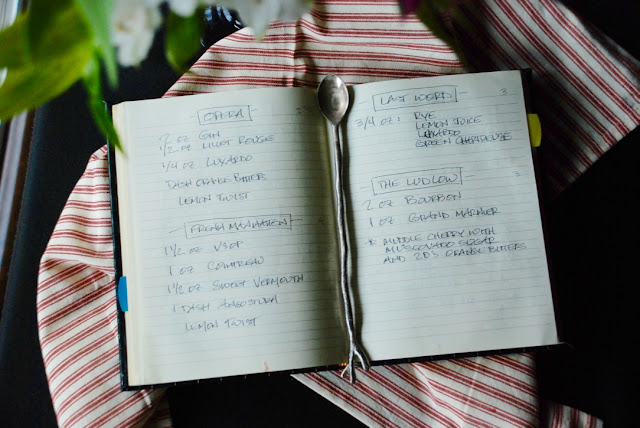 OPERA
1/2 OZ GIN
1/2 OZ LILLET ROUGE
1/4 OZ LUXARDO
DASH ORANGE BITTERS
LEMON TWIST
FRENCH MANHATTAN
1 1/2 OZ VSOP
1 OZ COINTREAU
1 1/2 OZ SWEET VERMOUTH
1 DASH ANGOSTURA
LEMON TWIST
LAST WORD
3
3/4 OZ : RYE
LEMON JUICE
LUXARDO
GREEN CHARTREUSE
THE LUDLOW
2 OZ BOURBON
1 OZ GRAND MARNIER
* MUDDLE CHERRY WITH
MUSCOVADO SUGAR
AND 2D'S ORANGE BITTERS